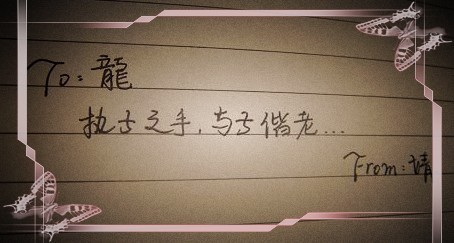 To: 龍
执子之手,与子偕老...
From: